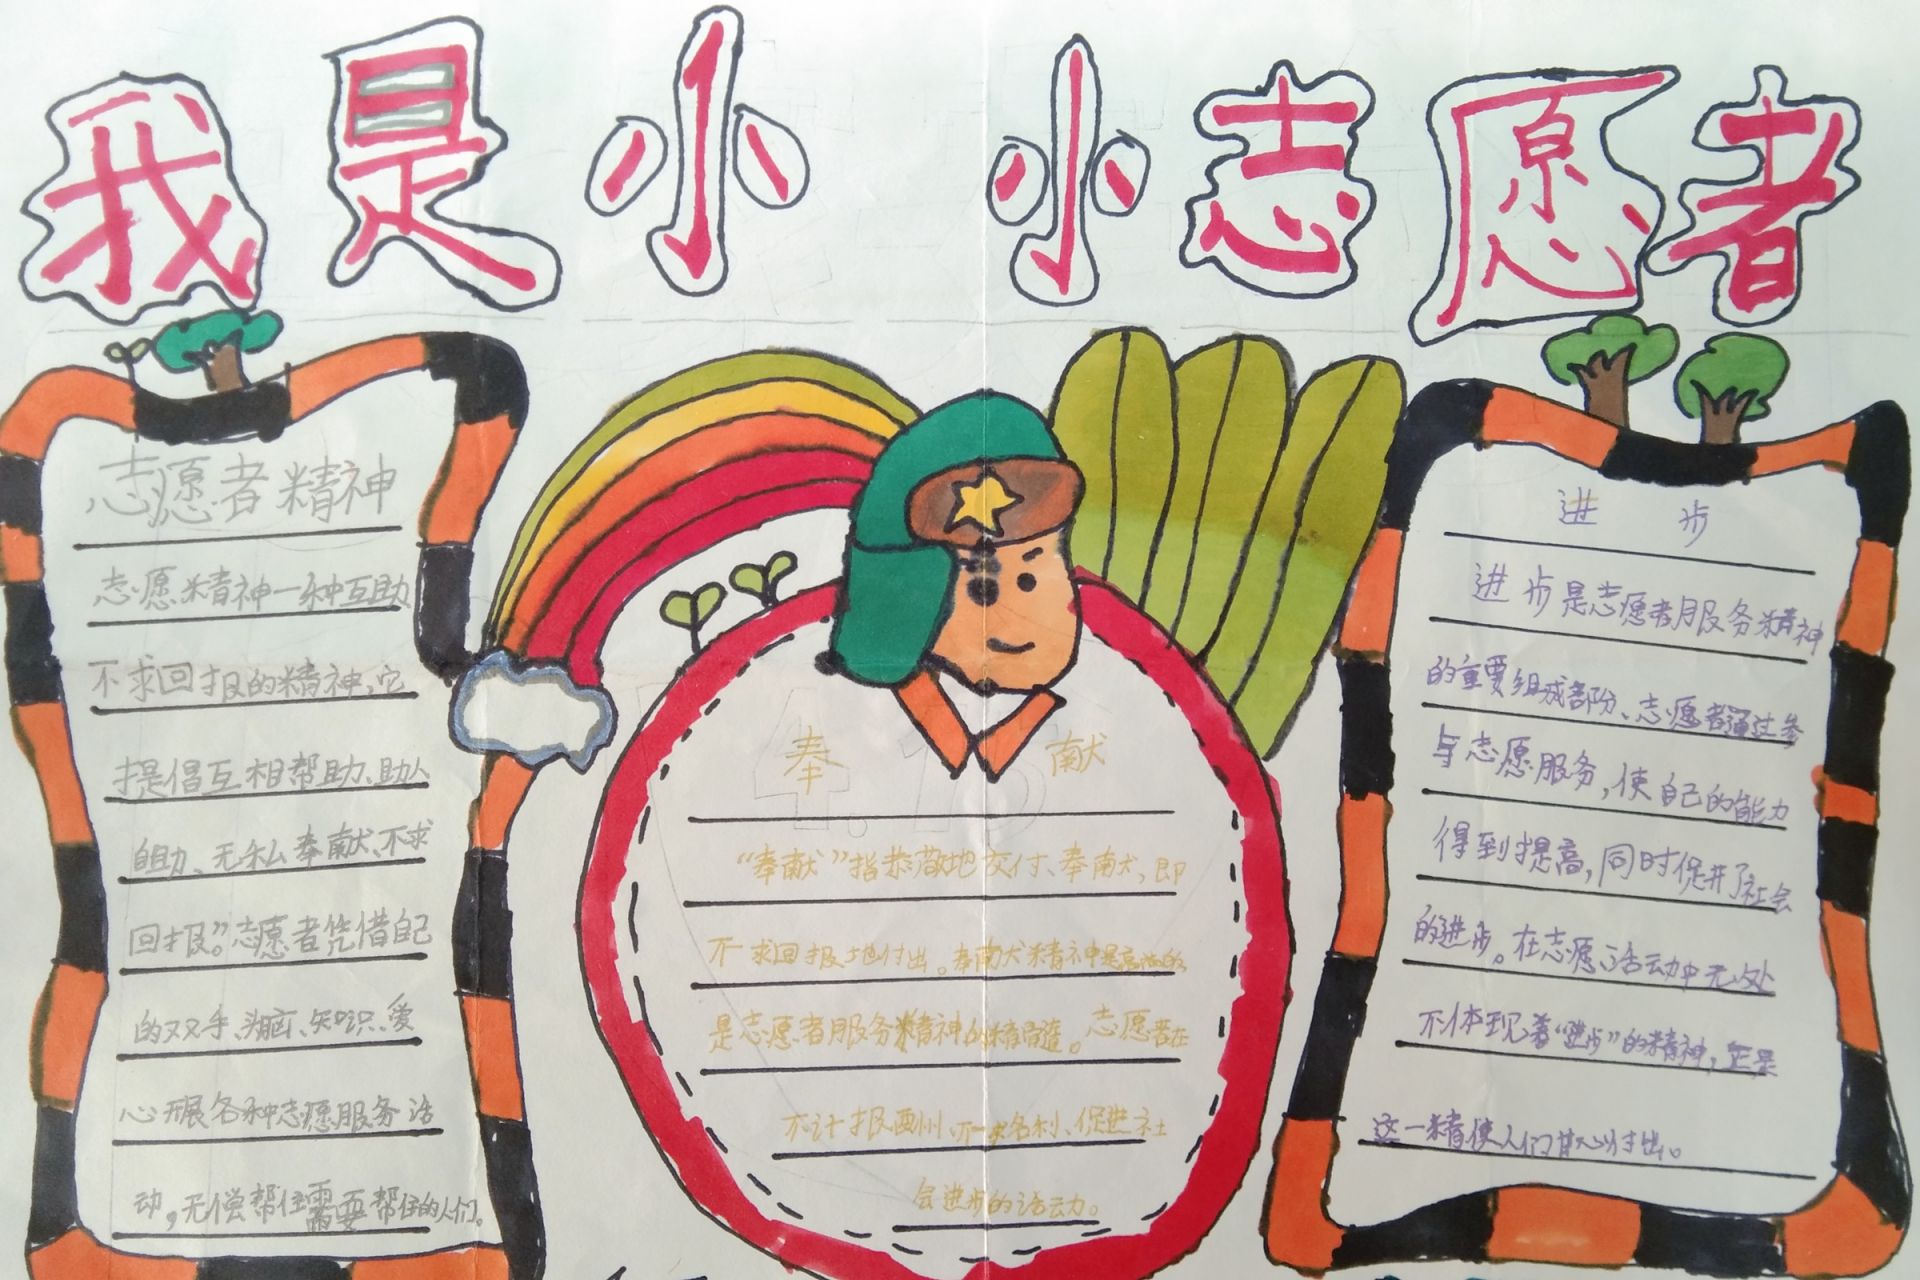 我是小小志愿者
志愿者精神
志愿精神一种互助
不求回报的精神,它
提倡互相帮助、助人
自助、无私奉献、不求
回报。”志愿者凭借自己
的双手、头脑、知识、爱
心开展各种志愿服务活
动,无偿帮住需要帮住的人们。
奉 献
“奉献”指恭敬地交付、奉献,即
不求回报地付出。奉献精神是高尚的
是志愿者服务精神的精髓。志愿者在
不计报酬、不求名利、促进社
会进步的活动力。
进 步
进步是志愿者服务精神
的重要组成部份、志愿者通过参
与志愿服务,使自己的能力
得到提高,同时促进了社会
的进步。在志愿活动中无处
不体现着“进步”的精神,正是
这一精使人们甘心付出。